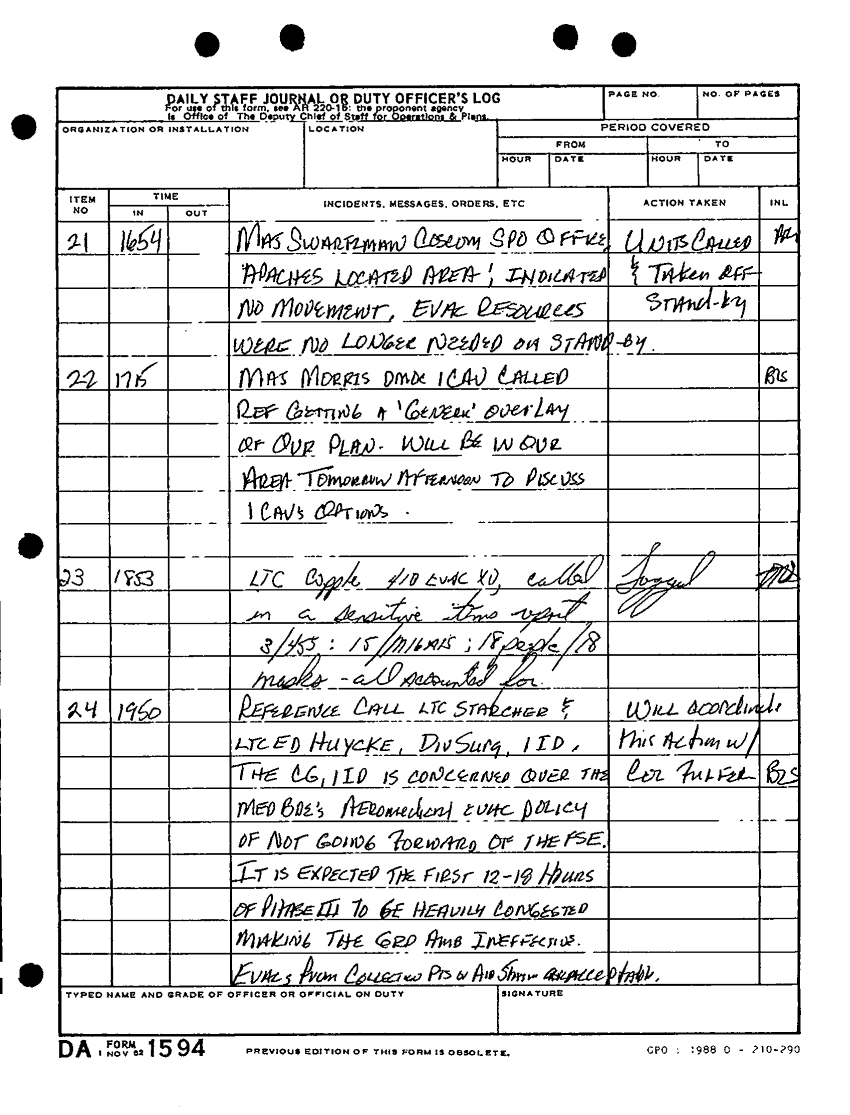 DAILY STAFF JOURNAL OR DUTY OFFICER'S LOG
For use of this form, see AR 220-15: the proponent agency
is Office of The Deputy Chief of Staff for Operations & Plans.
PAGE NO.
NO. OF PAGES
ORGANIZATION OR INSTALLATION
LOCATION
PERIOD COVERED
FROM
TO
HOUR
DATE
HOUR
DATE
ITEM NO
TIME
IN
OUT
INCIDENTS, MESSAGES, ORDERS, ETC
ACTION TAKEN
INL
21 1654 MAJ SWARTZMAN COSCOM SPO OFFICE, UNITS CALLED
'APACHES LOCATED AREA', INDICATED & TAKEN OFF
NO MOVEMENT, EVAC RESOURCES STAND-by
WERE NO LONGER NEEDED ON STAND-BY.
22 1715 MAJ MORRIS 1 CAV CALLED BLS
REF GETTING A 'GENERIC' OVERLAY
OF OUR PLAN. WILL BE IN OUR
AREA TOMORROW AFTERNOON TO DISCUSS
1 CAV'S OPTIONS.
23 1853 LTC 410 EVAC XO, called Logged
in a sensitive items report
3/455: 15/M16A1S; 18 people/18
masks - all accounted for
24 1950 REFERENCE CALL LTC STARCHER & WILL acordinate
LTC ED HUYCKE, DIV SURG, 1 ID. this ACTION W/
THE CG, 1 ID IS CONCERNED OVER THE COL FULFER BLS
MED BDE'S AEROMEDICAL EVAC POLICY
OF NOT GOING FORWARD OF THE FSE.
IT IS EXPECTED THE FIRST 12-18 HOURS
OF PHASE III TO BE HEAVILY CONGESTED
MAKING THE GRD AMB INEFFECTIVE.
EVACS FROM COLLECTION PTS OR AID STATION
TYPED NAME AND GRADE OF OFFICER OR OFFICIAL ON DUTY
SIGNATURE
DA FORM 1 NOV 62 1594
PREVIOUS EDITION OF THIS FORM IS OBSOLETE.
GPO : 1988 O - 210-290